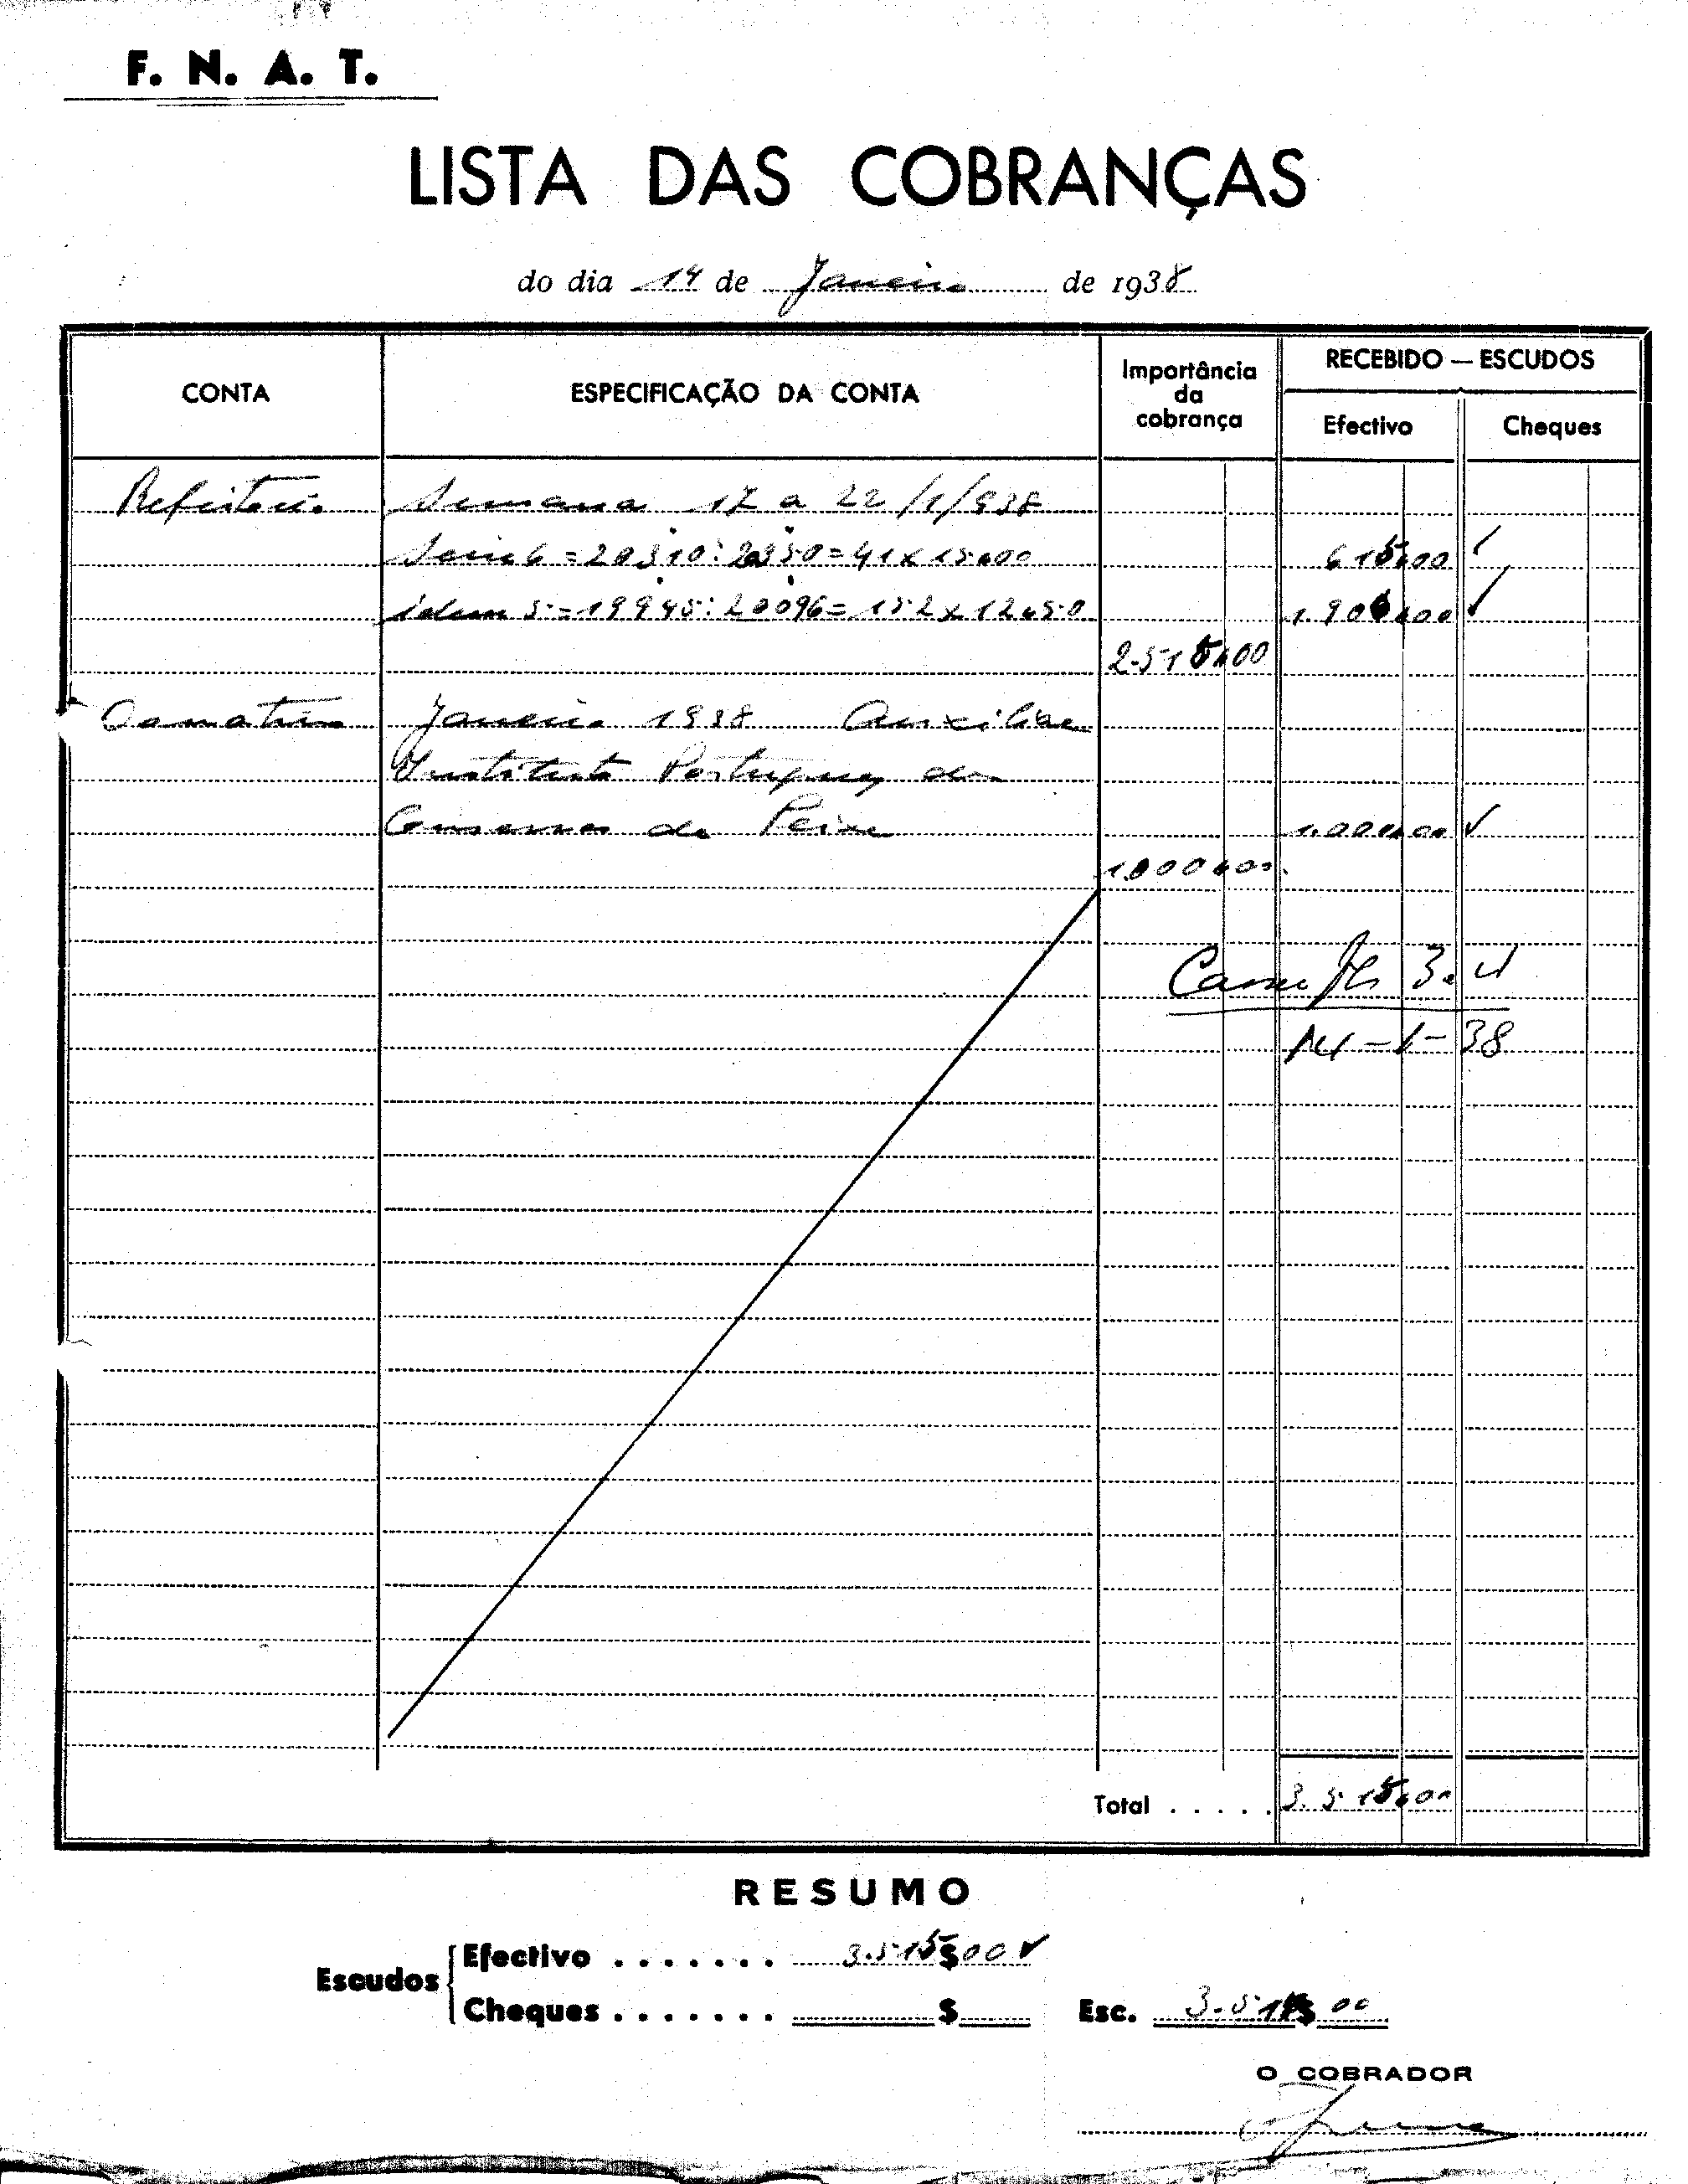 F. N. A. T.
LISTA DAS COBRANÇAS
do dia 14 de Janeiro de 1938
CONTA ESPECIFICAÇÃO DA CONTA Importância da cobrança RECEBIDO — ESCUDOS
Efectivo Cheques
Refeitorio Semana 17 a 22/1/938
Serie 6 = 20310 : 20350 = 41 x 15$00 615$00
idem 5 = 19945 : 20096 = 152 x 12$50 1.900$00
2.515$00
Donativos Janeiro 1938 Auxiliar
Instituto Portuguez de
Conservas de Peixe 1.000$00
1.000$00
3.4
14-1-38
Total . . . . . 3.515$00
RESUMO
Escudos Efectivo . . . . . . . 3.515$00
Cheques . . . . . . . $ Esc. 3.515$00
O COBRADOR